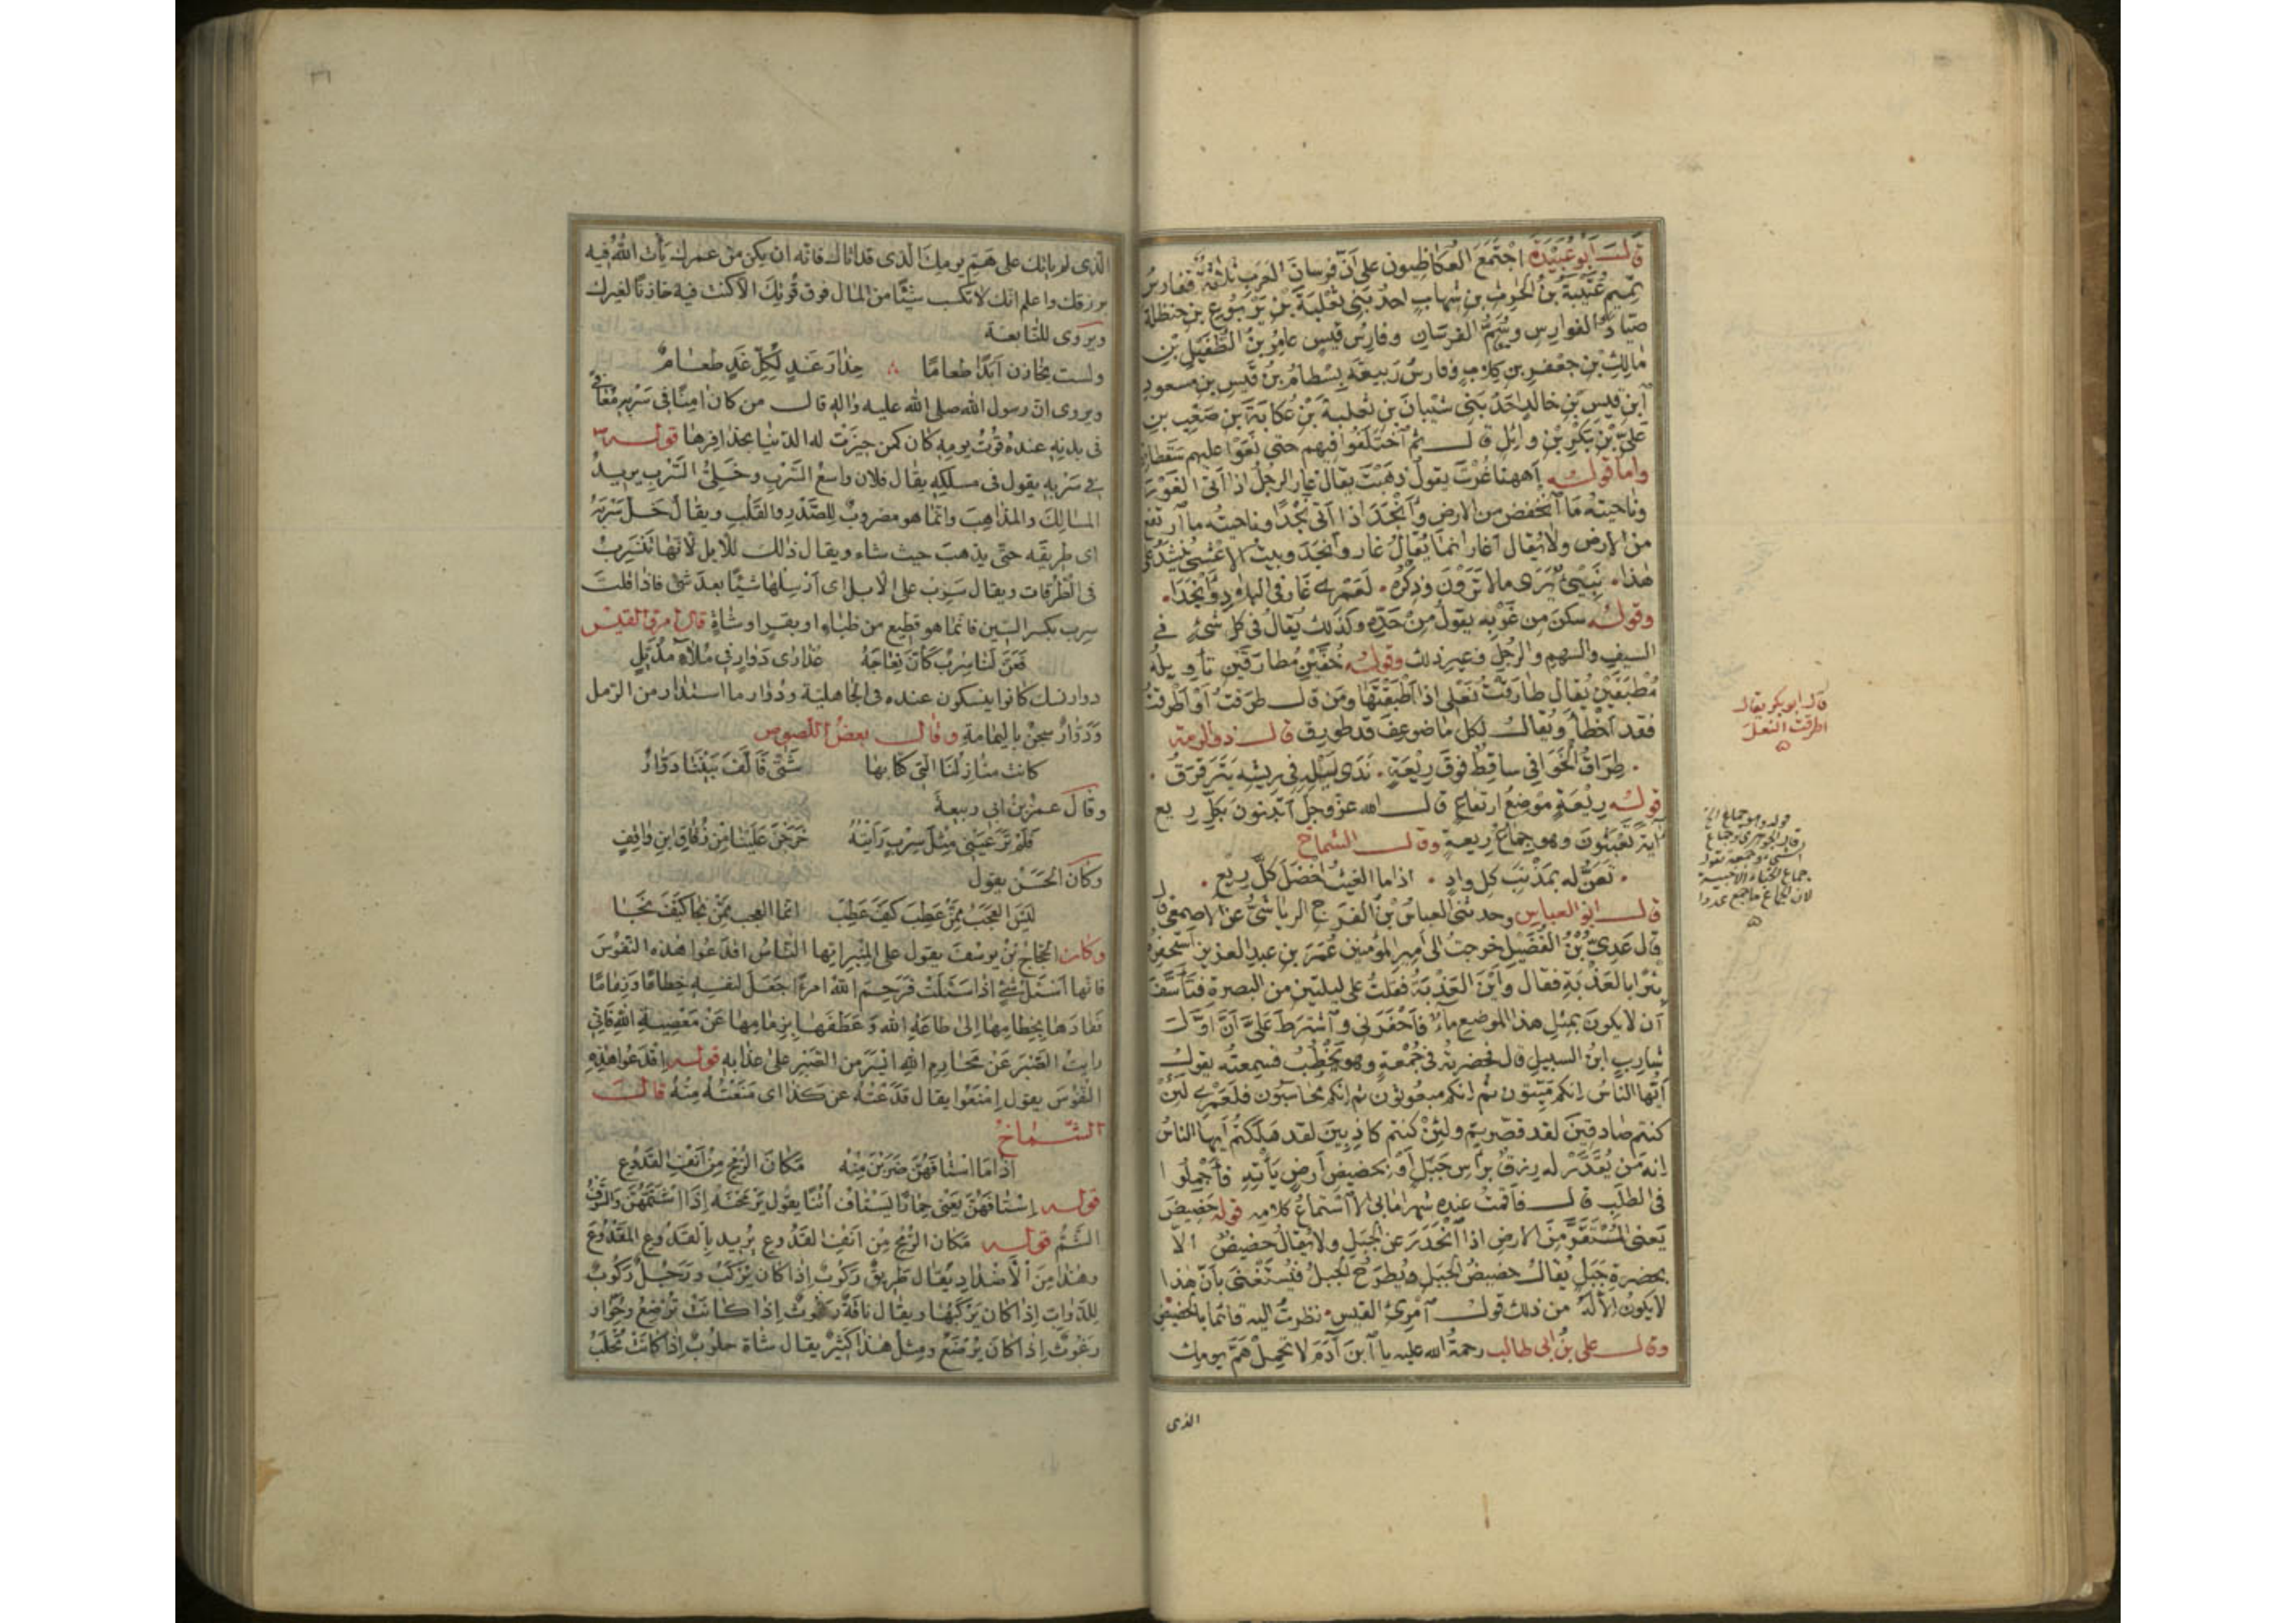 قال أبو عُبَيْدَة اجْتَمَعَ العُكاظِيون على أنّ فرسانَ العَرَب ثلثةٌ ففارسُ
تميمٍ عُتَيبةُ بنُ الحرِث بن شهابٍ احدُ بَنى ثعْلبةَ بْن يَرْبوعِ بن حنظلة
صيّادُ الفوارس وسُمُّ الفرسَانِ وفارسُ قيسٍ عامرُ بنُ الطُّفَيلِ بن
مالِكِ بْنِ جعْفرِ بن كلابٍ وفارسُ ربيعةَ بِسْطامُ بنُ قَيسِ بنِ مسعودِ
ابنِ قيسِ بْنِ خالدٍ احَدُ بَنى شيْبانَ بنِ ثعلبةَ بْنِ عُكابَةَ بن صَعْبِ بنِ
عَلىّ بْنِ بَكْرِ بْنِ وايل قال ثم اختلَفوا فيهم حتى نَعَوْا عليهم سَقطاتِهم
واما قوله أههنا غُرْتَ يقول ذهَبْتَ يقال غار الرجُلُ اذا اتى الغَوْرَ
وناحيته مَا انخفض من الارض وأَنْجَدَ اذا اتى نجْدًا وناحيتُه ما ارتفع
من الارض ولا يُقال اغار انما يُقالُ غار وانجَدَ وبيت الاعْشى يُنشَدُ على
هٰذا. نَبىٌّ يَرَى مالا تَرَوْنَ وَذِكْرُه. لَعَمْرى غَارَ فى البلادِ وأَنْجَدَا.
وقوله سكنَ من غَرْبِه يقول مِنْ حَدِّه وكذلك يُقالُ فى كل شىءٍ فى
السيفِ والسهمِ والرجُلِ وغير ذلك وقوله خُفَّيْنِ مُطارَقَيْنِ تأويلُه
مُطْبَقَيْنِ يُقال طارَقْتُ نَعْلى اذا اطْبَقْتَها ومَن قال طرَقتُ اوْ اَطْرقْتُ
فقد اخْطأ ويُقالُ لكل ما ضوعِفَ قد طورِقَ قال ذو الرمّة
. طِرَاقُ الخَوَافى ساقِطٌ فوقَ رِيْعَةٍ. نَدَى لَيْلِه فى رِيشِه يَتَرَقرَقُ.
قوله رِيْعَةٍ موْضعُ ارتفاعٍ قال الله عزّ وجلّ أتَبنونَ بكلِّ ريعٍ
ايةً تَعْبَثونَ وهو جِماعُ رِيعةٍ وقال الشّماخ
. تَعِنُّ له بمَذْنَبِ كل وادٍ. اذا ما الغيثُ اخضَلَ كلَّ رِيعِ.
قال ابو العباس وحدثنى العباسُ بْنُ الفرَجِ الرياشىُّ عن الاصمعى قال
قال عَدِىُّ بْنُ الفُضَيلِ خرجتُ الى اميرِ المؤمنين عُمَرَ بن عبدِ العزيزِ أستحفِرُه
بئرًا بالعَذْبَةِ فقال وأيْنَ العَذْبَةُ فقلتُ على ليلتين من البصرةِ فتأسَّفَ
أن لا يكونَ بمثلِ هذا الموضعِ ماءٌ فأحْفَرَنى واشْترَطَ علىَّ أنّ اوّلَ
شاربٍ ابنُ السبيل قال فحضرتُه فى جُمُعةٍ وهو يَخْطُبُ فسمعتُه يقول
أيّها الناسُ انكم ميّتون ثم انكم مبعوثون ثم انكم محاسَبون فلَعَمْرى لئنْ
كنتم صادقينَ لقد قصّرتم ولئنْ كنتم كاذِبينَ لقد هَلَكتُم أيها الناسُ
انه من يُقَدَّرْ له رِزقٌ برأسِ جَبَلٍ أوْ بحضيضِ أرضٍ يأْتِه فأجمِلوا
فى الطلَبِ قال فأقمتُ عندَه شهرا مابى الّا استماعُ كلامِه قوله حَضِيض
يَعنى المُسْتَقَرَّ مِنَ الارضِ اذا انْحَدَرَ عن الجبَلِ ولا يُقالُ حضيضٌ الّا
بحضرةِ جَبَلٍ يُقالُ حضيضُ الجبَلِ ويُطرَحُ الجبلُ فيُستَغْنى بأنّ هٰذا
لا يكونُ الّا له من ذلك قول امرئ القيس. نظرتُ اليه قائما بالحضيض
وقال على بنُ ابى طالب رحمةُ الله عليه يا ابنَ آدَمَ لا تحمِلْ هَمَّ يومِك
الذى
قال ابو بكر يقال
اطرقت النعل
قوله وهو جماع الخ
قال الجوهرى وجماع
الشىء جمعه تقول
جماع الخباء الاخبية
لان الجماع ما جمع عددا
الّذى لم يأتك على هَمّ يومِكَ الّذى قد اتاك فانّه ان يكن من عمرك يأت اللهُ فيه
برزقك واعلم انّك لا تكسب شيئًا من المال فوق قُوتِكَ الّا كنت فيه خازنًا لغيرك
ويروى للنّابغة
ولست بخازن ابَدًا طعامًا حِذارَ غَدٍ لِكُلِّ غَدٍ طعامُ
ويروى انّ رسول الله صلى الله عليه واله قال من كان امِنًا فى سَرْبِهِ مُعافًى
فى بدنِهِ عندهُ قُوتُ يومِهِ كان كمن حِيزَتْ له الدّنيا بحذافِرِها قوله
فى سَرْبِهِ يقول فى مسلكِهِ يقال فلان واسعُ السَّرْبِ وخَلِىُّ السَّرْبِ يريدُ
المسالِكَ والمذاهِبَ وانّما هو مضروبٌ للصَّدْرِ والقَلْبِ ويقالُ خَلِّ سَرْبَهُ
اى طريقَه حتّى يذهبَ حيث شاء ويقال ذٰلك للابل لانّها تَنْسَرِبُ
فى الطُّرُقات ويقال سَرِّبْ علىّ الابل اى اَرْسِلْها شيئًا بعد شئ فاذا قلتَ
سِرب بكسر السّين فانّما هو قطيع من ظباءٍ او بقرٍ او شاةٍ قال امرؤ القيس
فَعَنَّ لَنَا سِرْبٌ كَاَنَّ نِعَاجَهُ عَذَارَى دَوَارٍ فى مُلاءٍ مُذَيَّلِ
دوار نسك كانوا ينسكون عنده فى الجاهليّة ودُوّار ما استدار من الرّمل
وَدَوّارٌ سِجنٌ باليمامةِ وقال بعضُ اللصوص
كانت منازِلُنَا الّتى كنّا بها شَتّى فَاَلَّفَ بَيْنَنا دَوّارُ
وقالَ عمرُ بنُ ابى ربيعةَ
فَلَمْ تَرَ عَيْنى مِثْلَ سِرْبٍ رَاَيْتُهُ خَرَجْنَ عَلَيْنَا مِنْ زُقَاقِ ابنِ وَاقِفِ
وكَانَ الحَسَنُ يقول
لَيْسَ العَجَبُ مِمَّنْ عَطِبَ كَيْفَ عَطِبَ انّما العجب مِمَّنْ نجا كَيْفَ نَجَا
وكان الحجّاجُ بْنُ يوسُفَ يقول على المِنْبَرِ ايّها النّاسُ اقْدَعُوا هٰذه النّفوسَ
فانّها اَسْئَلُ شَئٍ اذا سُئِلَتْ فَرَحِمَ اللهُ امرءًا جَعَلَ لنفسِهِ خِطامًا وَزِمَامًا
فَقَادَهَا بِخِطَامِهَا اِلى طَاعَةِ الله وَعَطَفَهَا بِزِمَامِهَا عَنْ مَعْصِيَةِ اللهِ فَاِنّى
رايتُ الصَّبْرَ عَنْ مَحَارِمِ اللهِ اَيْسَرَ مِنَ الصَّبْرِ عَلى عذابه قوله اِقْدَعُوا هٰذِهِ
النّفُوسَ يقول اِمْنَعُوا يقال قَدَعْتُهُ عن كَذَا اى مَنَعْتُهُ مِنْهُ قال
الشّمّاخُ
اذا مَا اسْتَافَهُنَّ ضَرَبْنَ مِنْهُ مَكَانَ الرُّمْحِ مِنْ اَنْفِ القَدُوعِ
قوله اِسْتَافَهُنَّ يَعْنى حِمَارًا يَسْتَافُ اُتُنًا يقُول يَرْمَحْنَهُ اِذَا اشْتَمَّهُنَّ وَالسَّوْفُ
الشَّمُّ قوله مَكَانَ الرُّمْحِ مِنْ اَنْفِ القَدُوعِ يُرِيد بِالْقَدُوعِ المَقْدُوعَ
وهٰذا مِنَ الاَضْدَادِ يُقَال طَرِيقٌ رَكُوبٌ اِذَا كانَ يُرْكَبُ وَرَجُلٌ رَكُوبٌ
لِلدَّوَابِّ اِذَا كَانَ يَرْكَبُهَا ويُقال نَاقَةٌ رَغُوثٌ اِذَا كَانَتْ تُرْضِعُ وَحُوَارٌ
رَغُوثٌ اِذَا كَانَ يُرْضَعُ ومِثْلُ هٰذَا كَثِيرٌ يقال شاة حلُوبٌ اِذَا كَانَتْ تُحْلَبُ